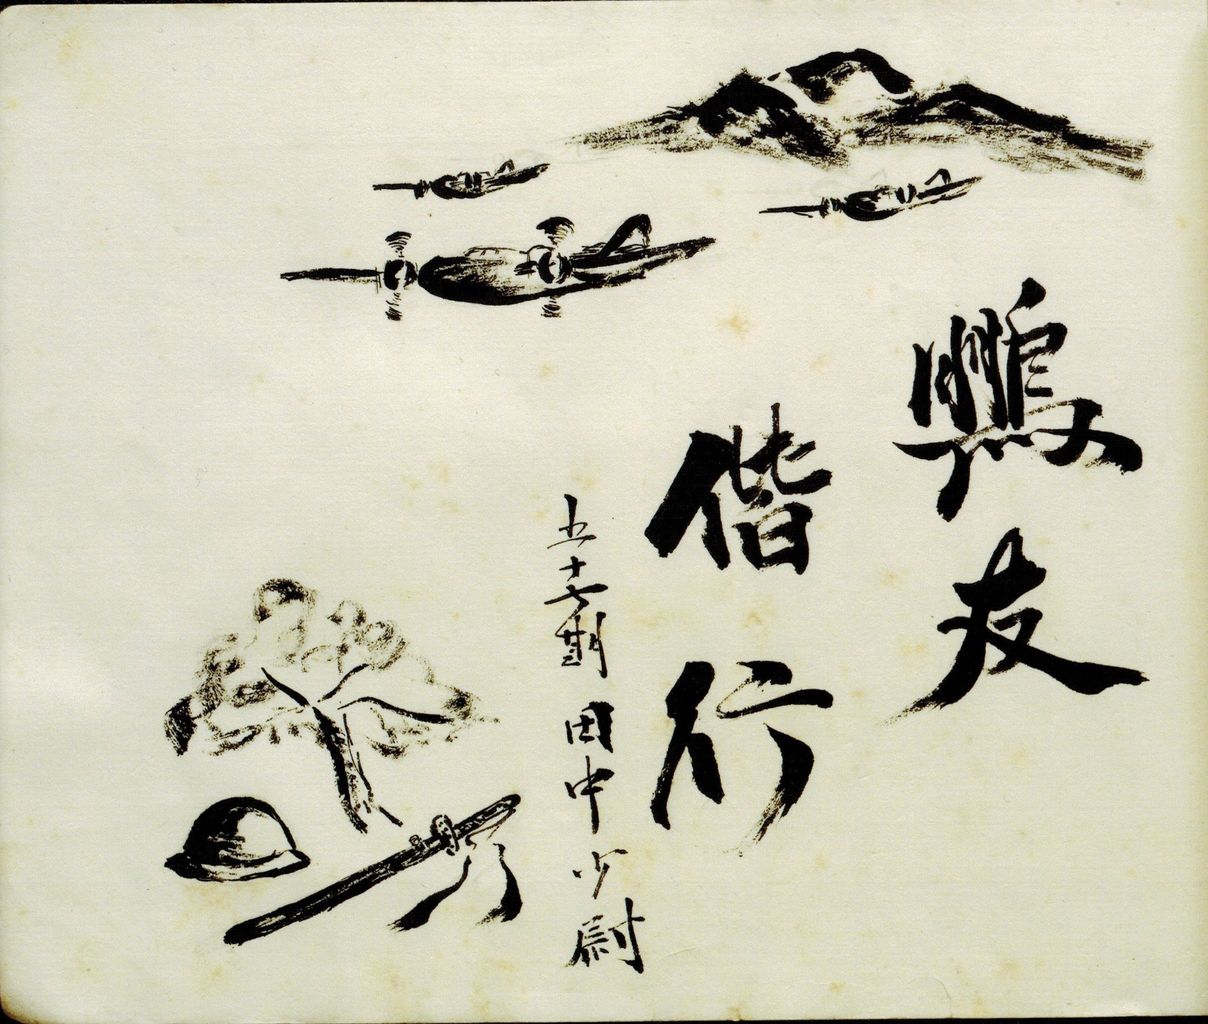 鵬友
偕行
五十七期 田中少尉